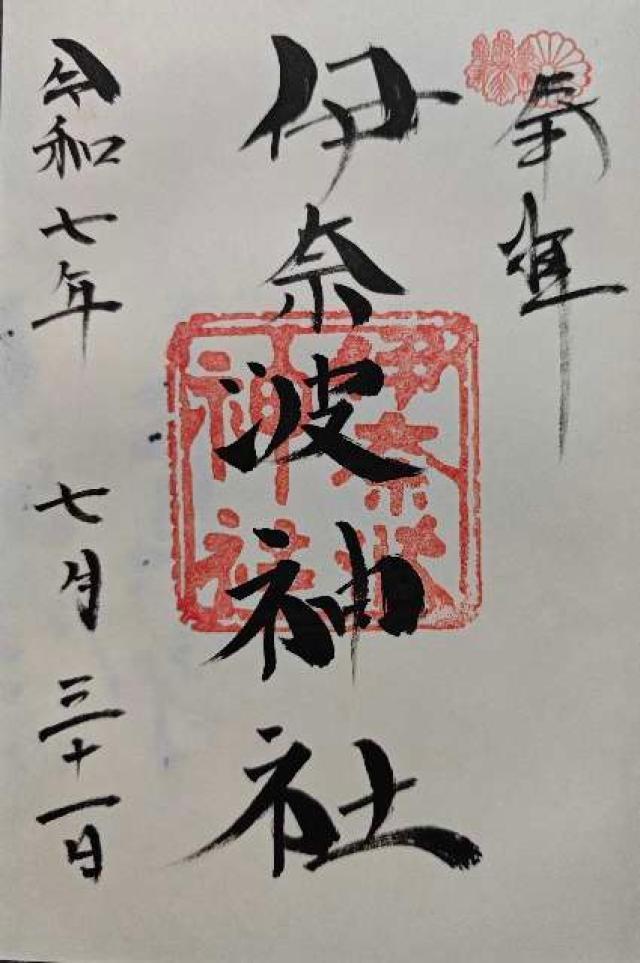 奉拝
伊奈波神社
伊奈波
神社
令和七年 七月 三十一日